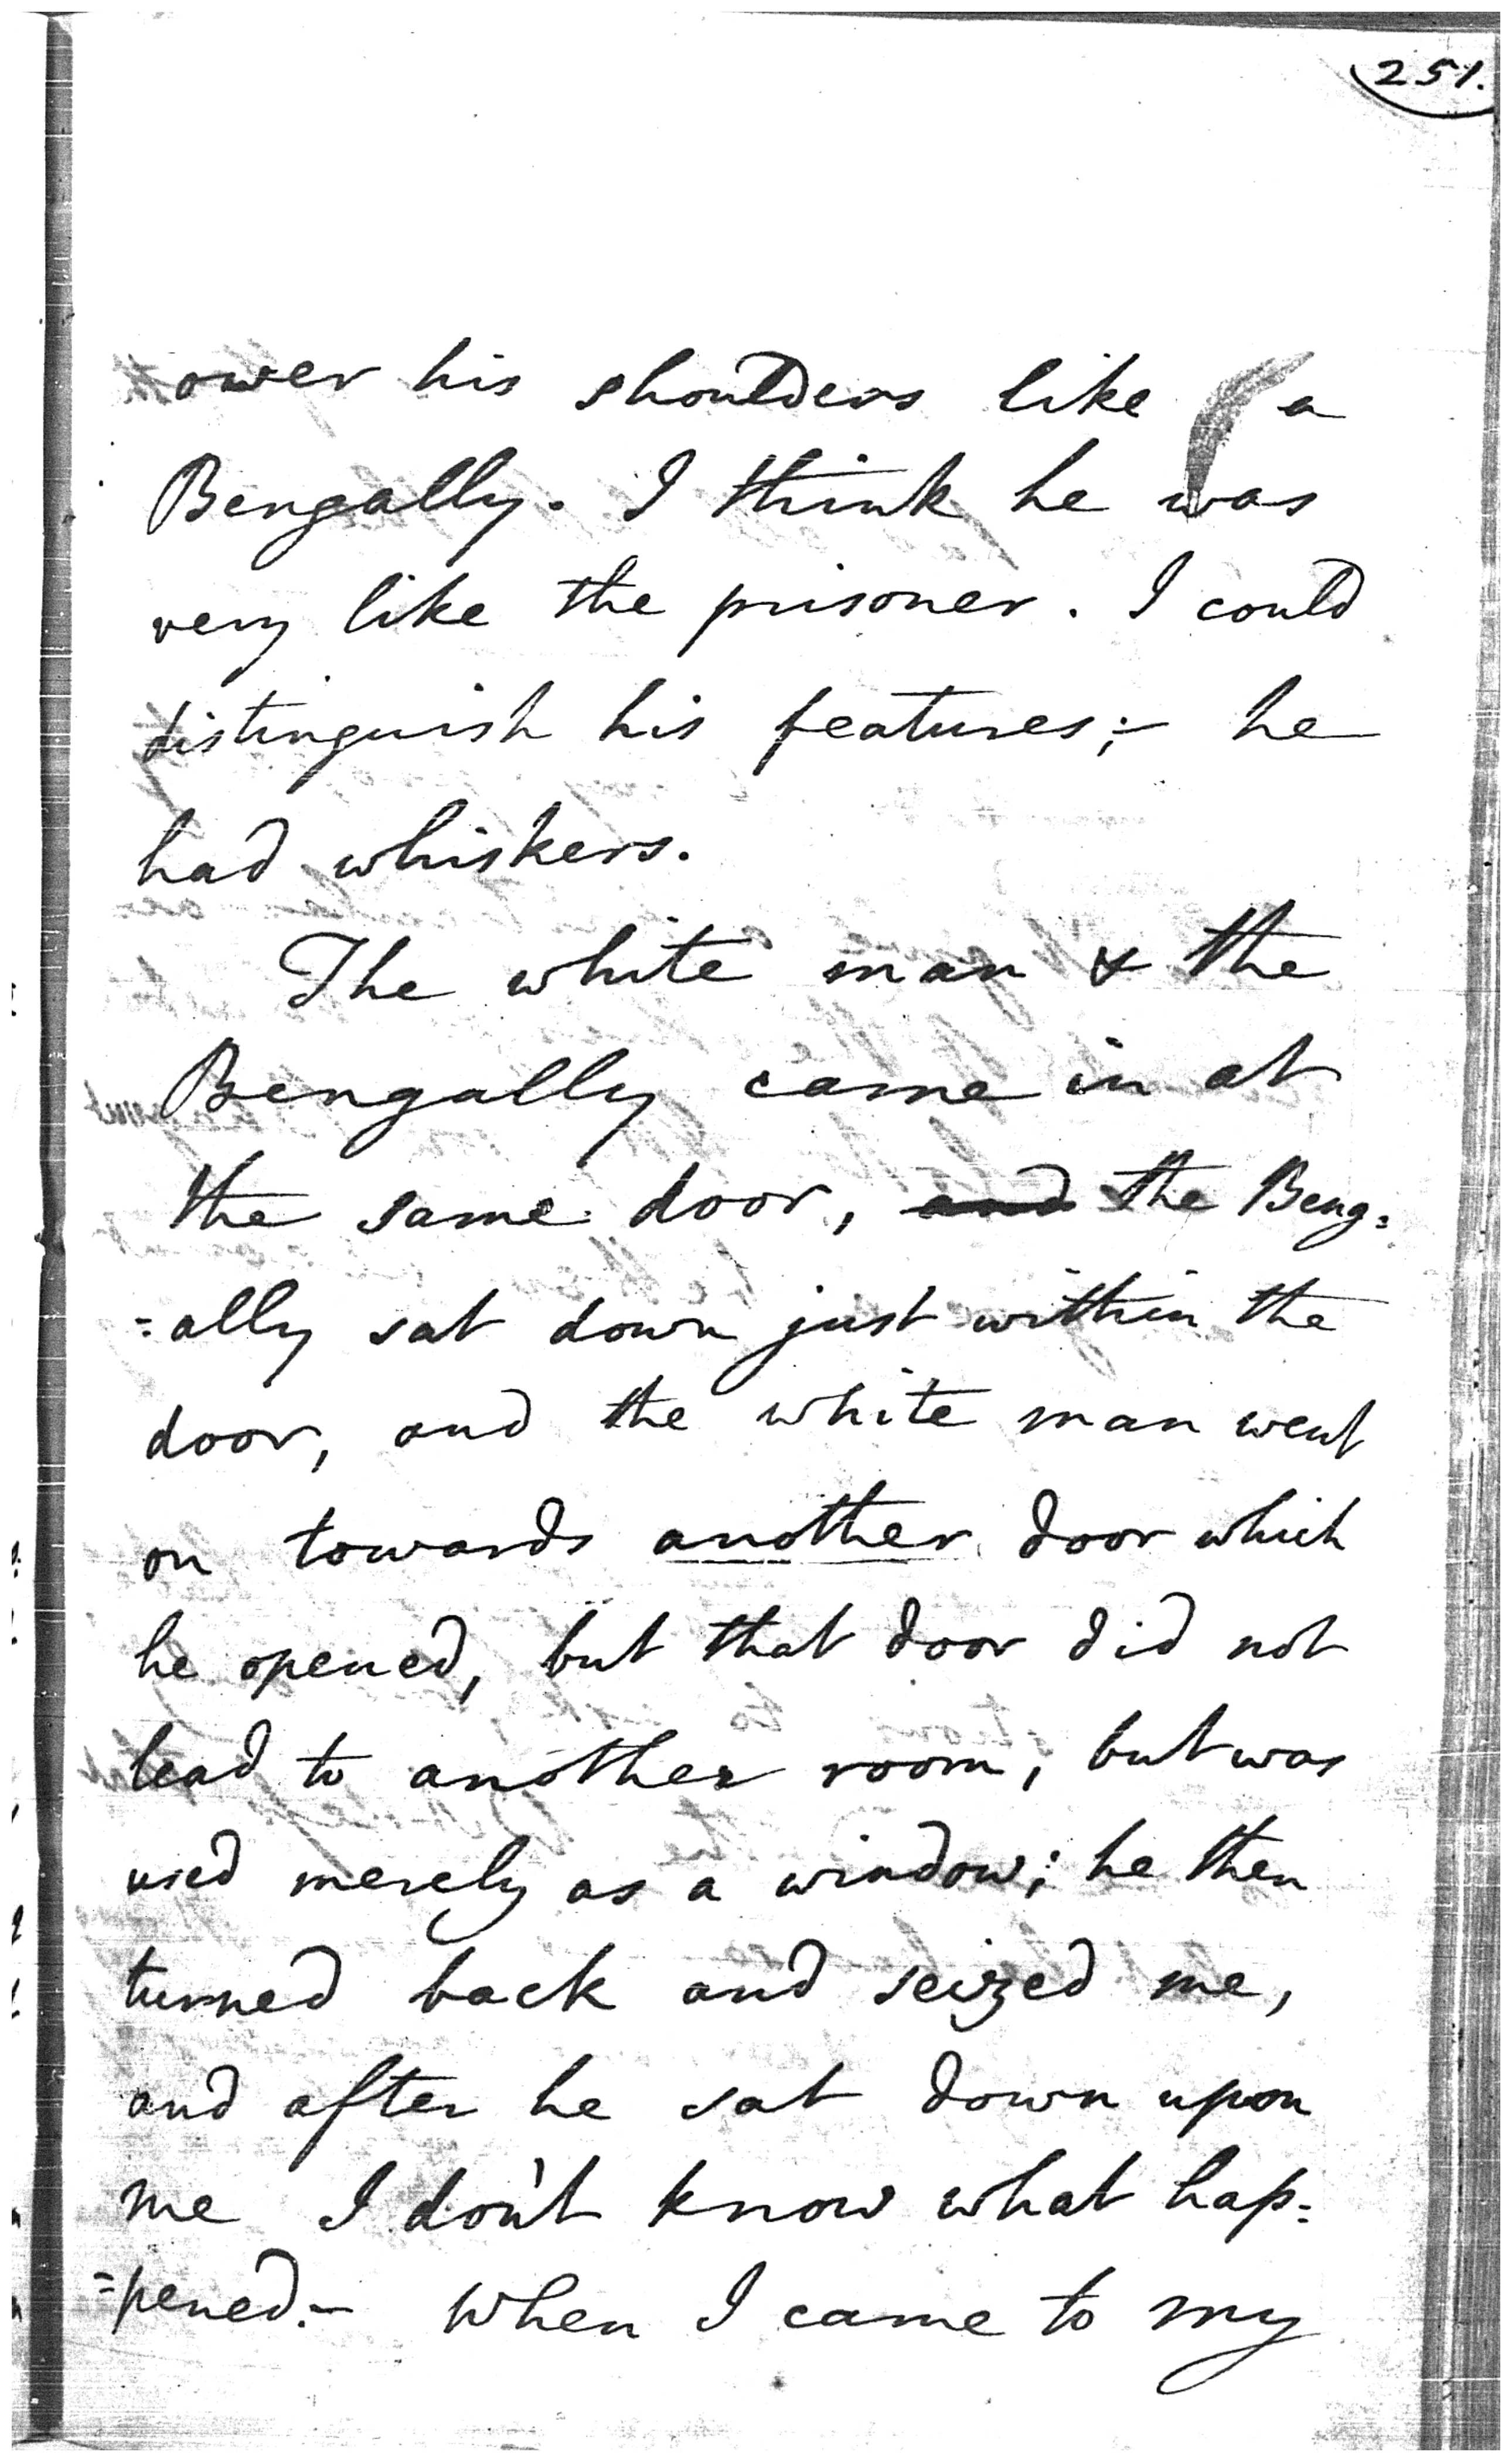 251.
over his shoulders like a
Bengally. I think he was
very like the prisoner. I could
distinguish his features;- he
had whiskers.
The white man & the
Bengally came in at
the same door, and the Beng=
=ally sat down just within the
door, and the white man went
on towards another door which
he opened, but that door did not
lead to another room, but was
used merely as a window; he then
turned back and seized me,
and after he sat down upon
me I don't know what hap=
=pened.- When I came to my